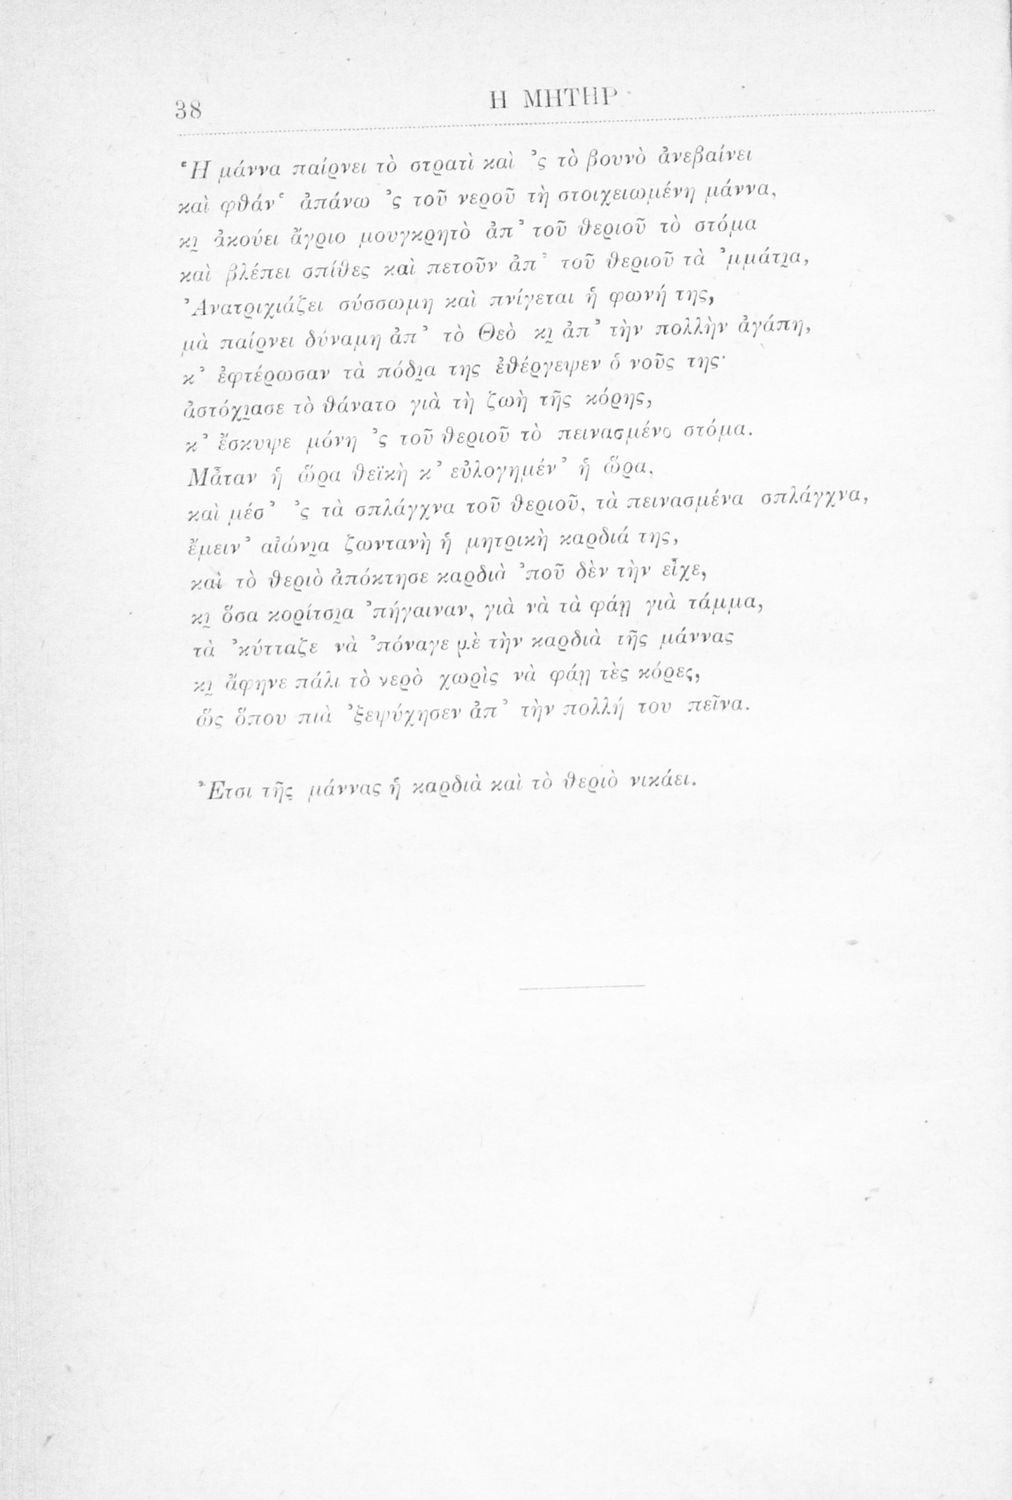 38
Η ΜΗΤΗΡ
Ἡ μάννα παίρνει τὸ στρατὶ καὶ ʼς τὸ βουνὸ ἀνεβαίνει
καὶ φθάν῾ ἀπάνω ʼς τοῦ νεροῦ τὴ στοιχειωμένη μάννα,
κι̯ ἀκούει ἄγριο μουγκρητὸ ἀπʼ τοῦ θεριοῦ τὸ στόμα
καὶ βλέπει σπίθες καὶ πετοῦν ἀπʼ τοῦ θεριοῦ τὰ ʼμμάτι̯α,
Ἀνατριχιάζει σύσσωμη καὶ πνίγεται ἡ φωνή της,
μὰ παίρνει δύναμη ἀπʼ τὸ Θεὸ κι̯ ἀπʼ τὴν πολλὴν ἀγάπη,
κʼ ἐφτέρωσαν τὰ πόδι̯α της ἐθέργεψεν ὁ νοῦς της·
ἀστόχι̯ασε τὸ θάνατο γιὰ τὴ ζωὴ τῆς κόρης,
κʼ ἔσκυψε μόνη ʼς τοῦ θεριοῦ τὸ πεινασμένο στόμα.
Μἆταν ἡ ὥρα θεϊκὴ κʼ εὐλογημένʼ ἡ ὥρα,
καὶ μέσʼ ʼς τὰ σπλάγχνα τοῦ θεριοῦ, τὰ πεινασμένα σπλάγχνα,
ἔμεινʼ αἰώνι̯α ζωντανὴ ἡ μητρικὴ καρδιά της,
καὶ τὸ θεριὸ ἀπόκτησε καρδιὰ ʼποῦ δὲν τὴν εἶχε,
κι̯ ὅσα κορίτσι̯α ʼπήγαιναν, γιὰ νὰ τὰ φάῃ γιὰ τάμμα,
τὰ ʼκύτταζε νὰ ʼπόναγε μὲ τὴν καρδιὰ τῆς μάννας
κι̯ ἄφηνε πάλι τὸ νερὸ χωρὶς νὰ φάῃ τὲς κόρες,
ὥς ὅπου πιὰ ʼξεψύχησεν ἀπʼ τὴν πολλή του πεῖνα.
Ἔτσι τῆς μάννας ἡ καρδιὰ καὶ τὸ θεριὸ νικάει.